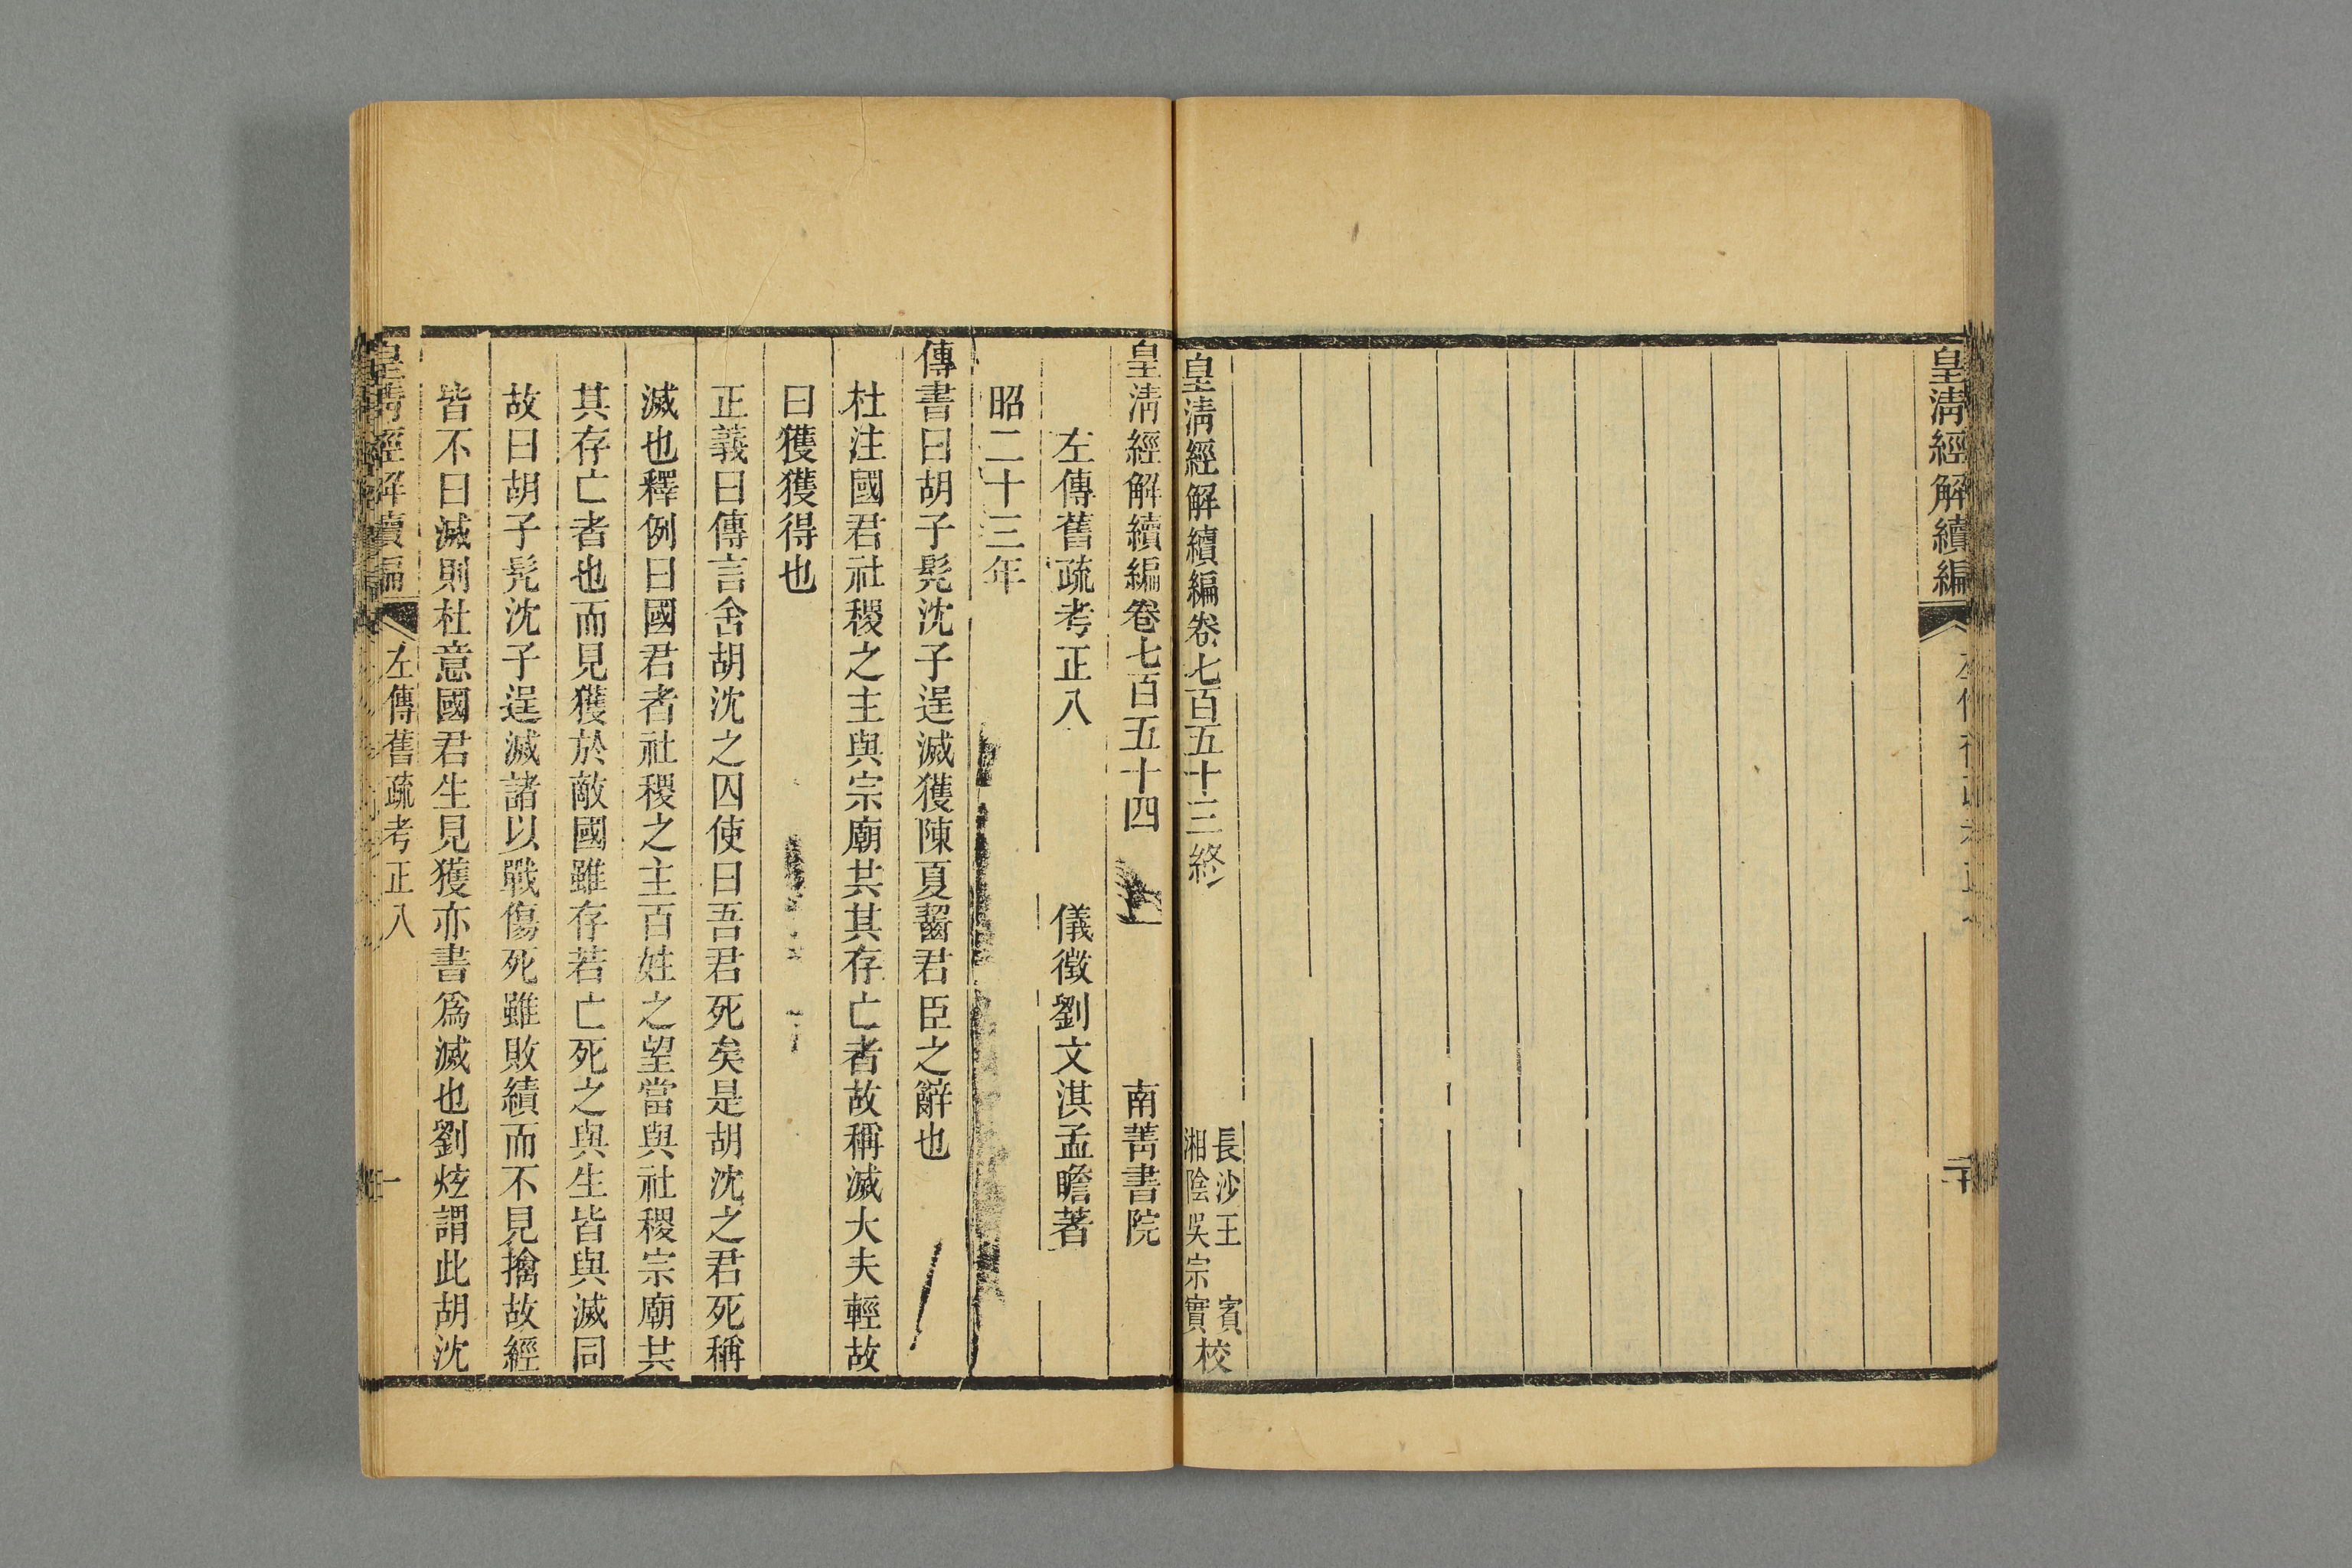 皇清經解續編
二十
皇清經解續編卷七百五十三終
長沙王賓
湘陰吳宗實
校
皇清經解續編卷七百五十四
南菁書院
左傳舊疏考正八
儀徵劉文淇孟瞻著
昭二十三年
傳書曰胡子髡沈子逞滅獲陳夏齧君臣之辭也
杜注國君社稷之主與宗廟共其存亡者故稱滅大夫輕故
曰獲獲得也
正義曰傳言舍胡沈之囚使曰吾君死矣是胡沈之君死稱
滅也釋例曰國君者社稷之主百姓之望當與社稷宗廟共
其存亡者也而見獲於敵國雖存若亡死之與生皆與滅同
故曰胡子髡沈子逞滅諸以戰傷死雖敗績而不見擒故經
皆不曰滅則杜意國君生見獲亦書爲滅也劉炫謂此胡沈
皇清經解續編
左傳舊疏考正八
一